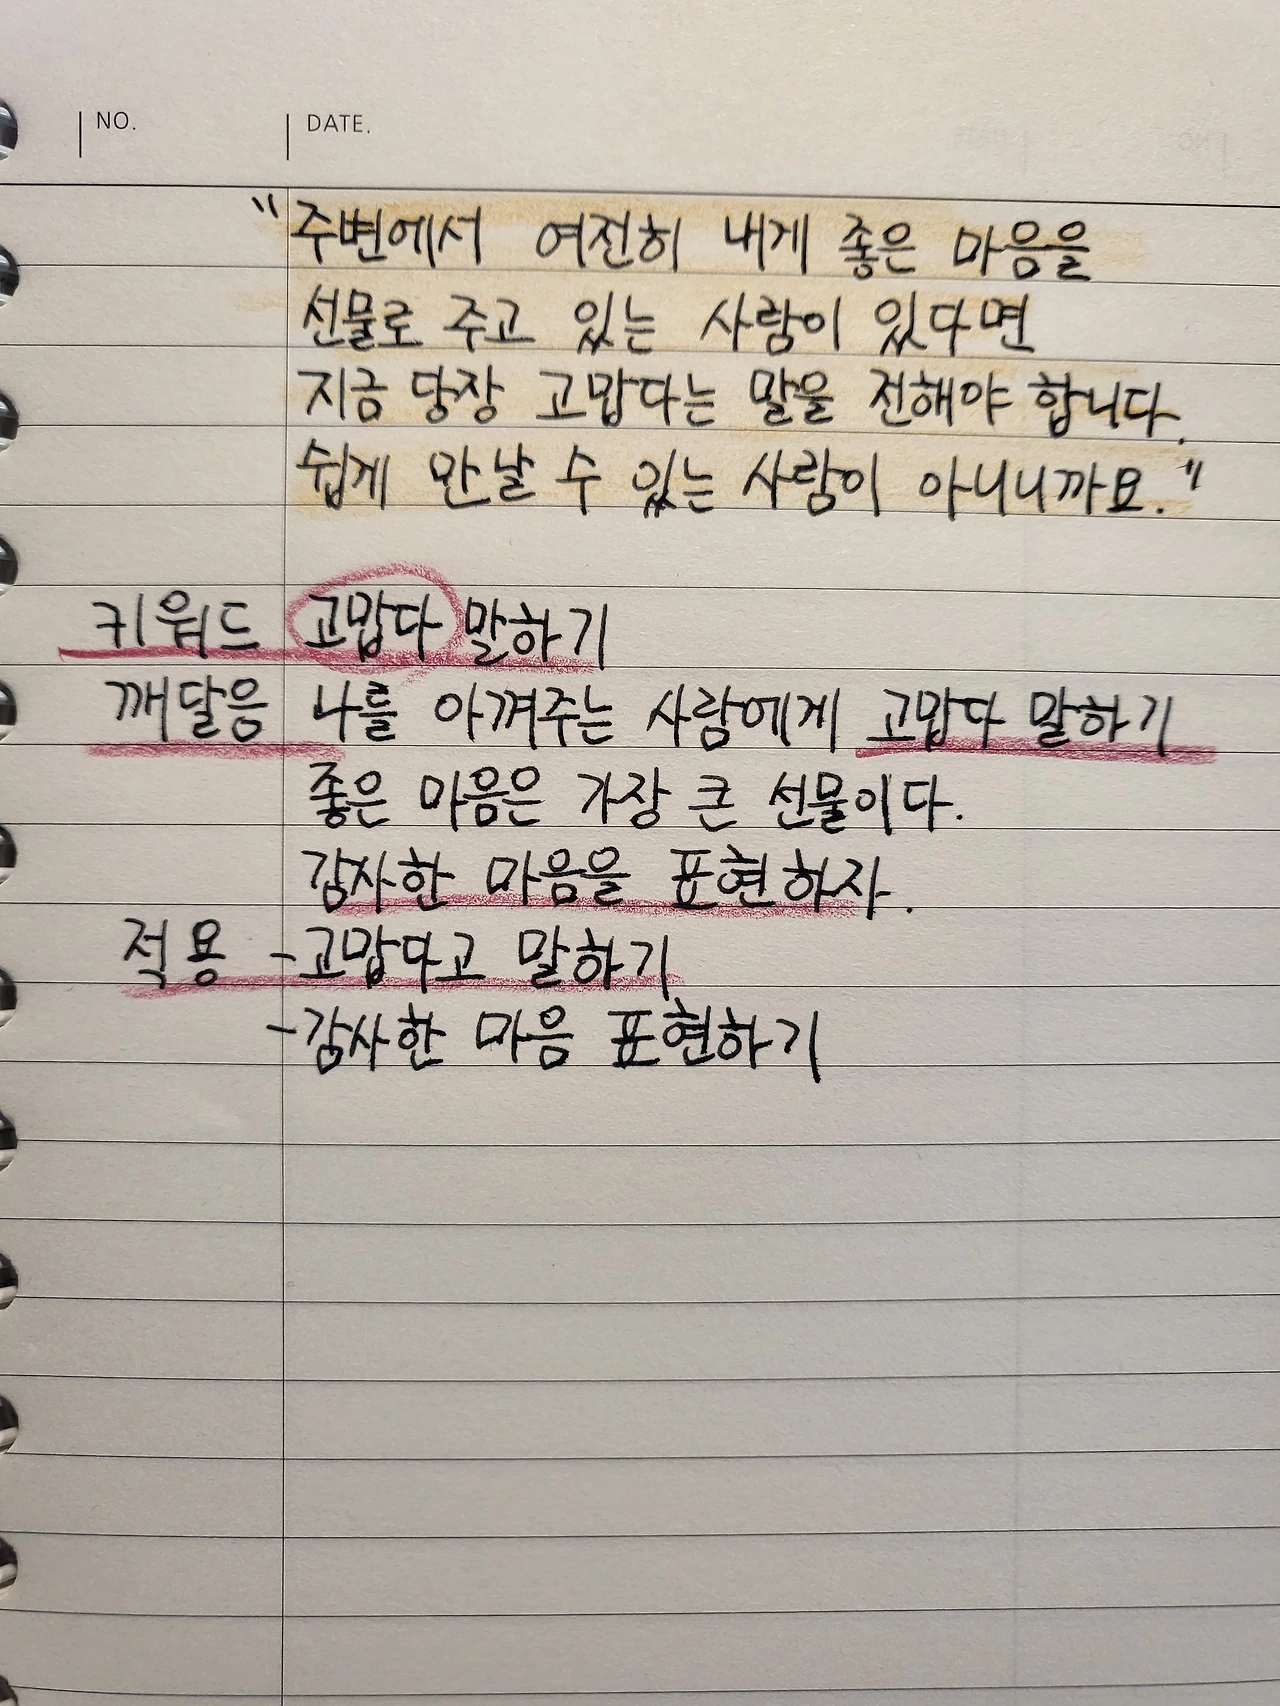 NO. DATE.
"주변에서 여전히 내게 좋은 마음을
선물로 주고 있는 사람이 있다면
지금 당장 고맙다는 말을 전해야 합니다.
쉽게 만날 수 있는 사람이 아니니까요."
키워드 고맙다 말하기
깨달음 나를 아껴주는 사람에게 고맙다 말하기
좋은 마음은 가장 큰 선물이다.
감사한 마음을 표현하자.
적용 -고맙다고 말하기
-감사한 마음 표현하기